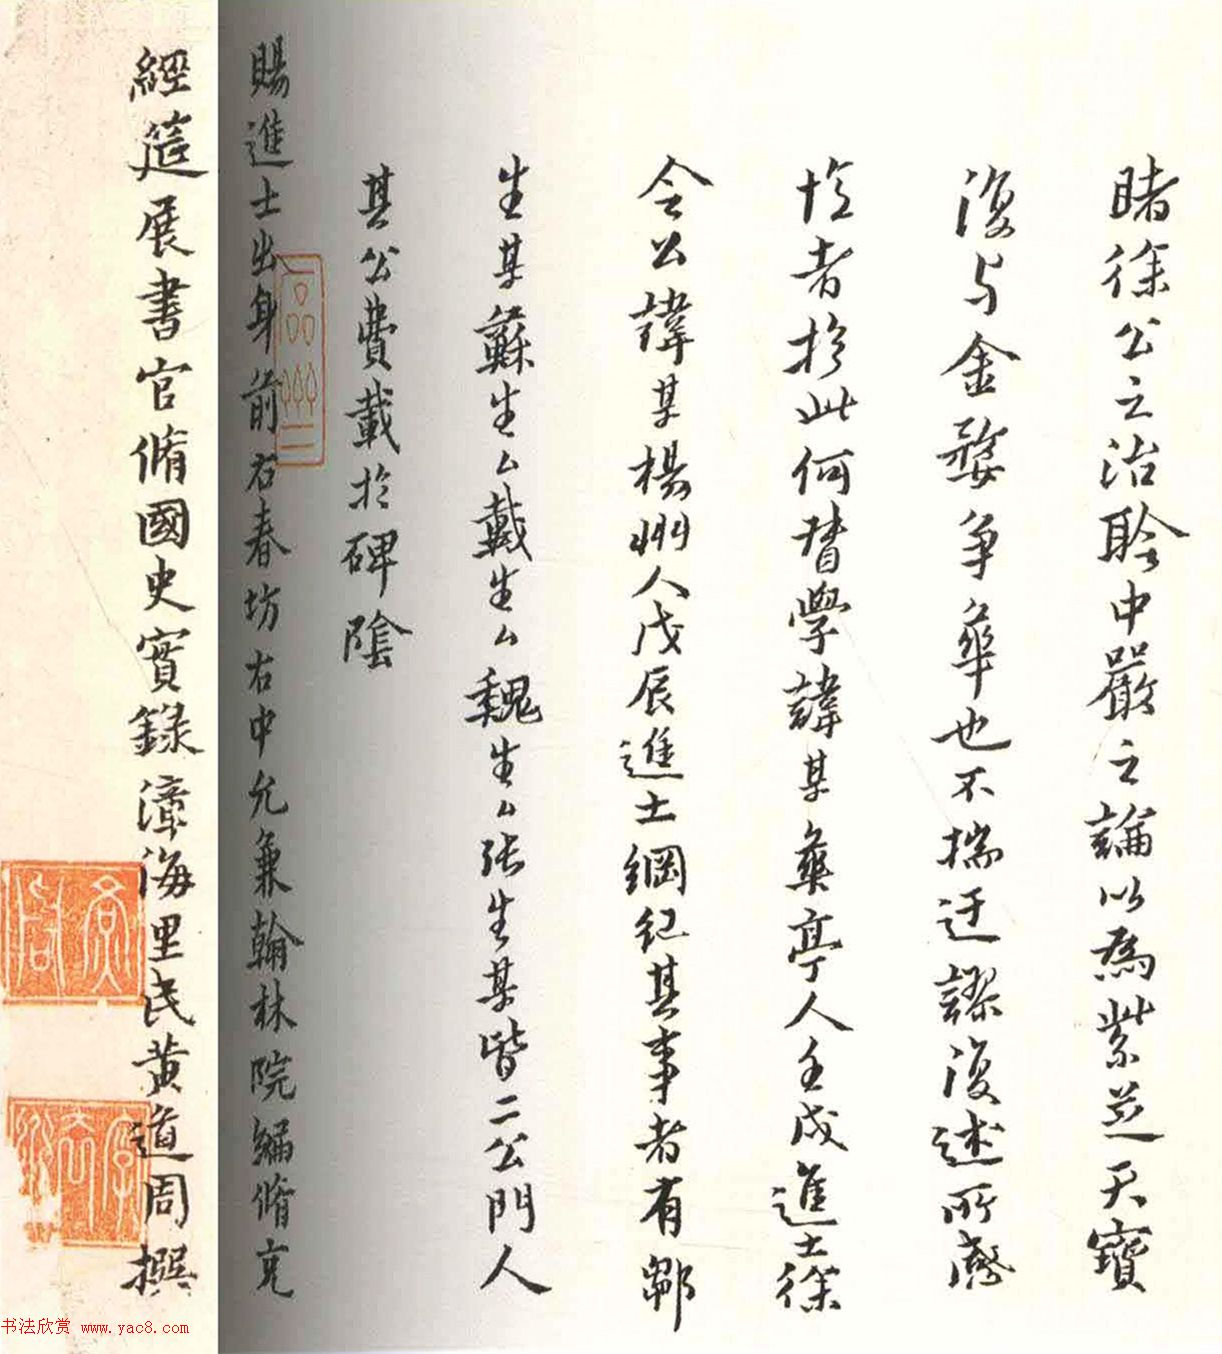 睹徐公之治聆中嚴之論以為紫芝天寶
復与金婺争華也不揣迂謬復述所
者於此何督學諱某彝亭人壬戌進士徐
令公諱某楊州人戊辰進士綱紀其事者有鄒
生某蘇生厶戴生厶魏生厶張生某皆二公門人
其公費載於碑陰
賜進士出身前右春坊右中允兼翰林院編脩充
經筵展書官脩國史實錄漳海里民黄道周撰
书法欣赏 www.yac8.com